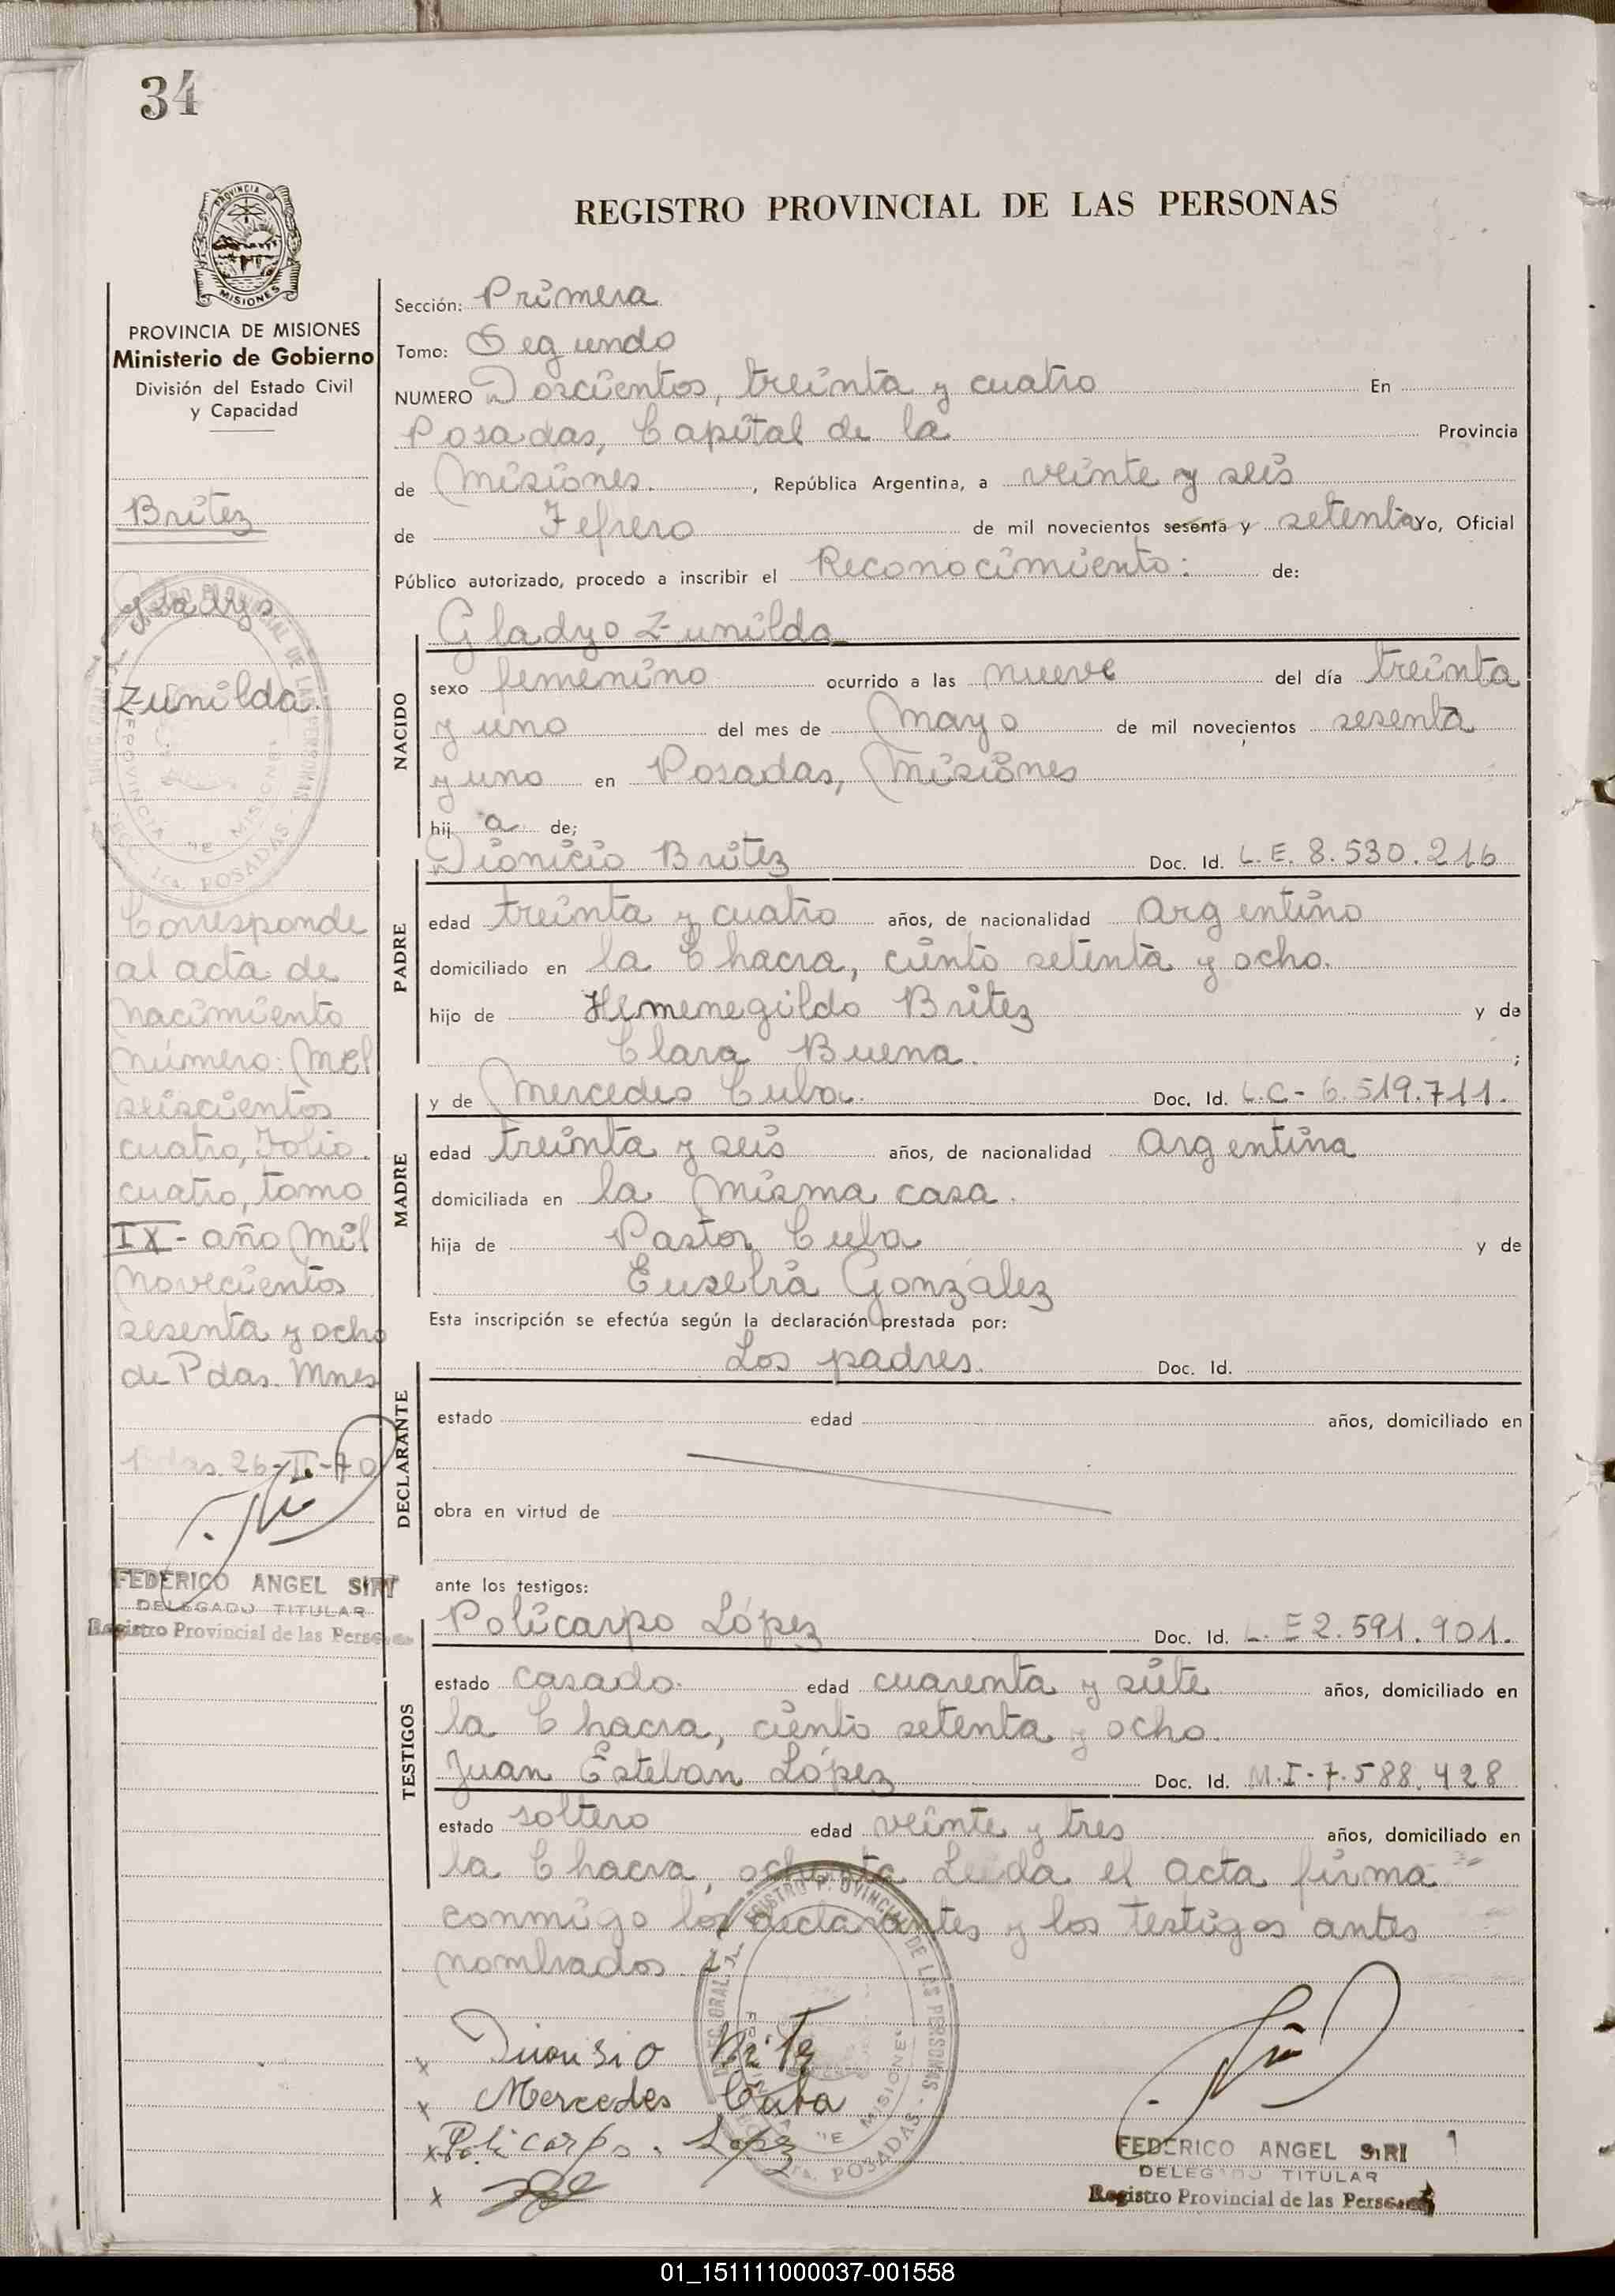 34
REGISTRO PROVINCIAL DE LAS PERSONAS
PROVINCIA DE MISIONES
Ministerio de Gobierno
División del Estado Civil
y Capacidad
Britez
Gladys
Zunilda.
Corresponde
al acta de
nacimiento
número: Mil
seiscientos
cuatro, Folio.
cuatro, tomo
IX- año Mil
novecientos
sesenta y ocho
de Pdas. Mnes
Pdas. 26-II-70
FEDERICO ANGEL SIRI
DELEGADO TITULAR
Registro Provincial de las Personas
Sección: Primera
Tomo: Segundo
NUMERO Doscientos, treinta y cuatro En
Posadas, Capital de la Provincia
de Misiones. , República Argentina, a veinte y seis
de Febrero de mil novecientos sesenta y setenta Yo, Oficial
Público autorizado, procedo a inscribir el Reconocimiento: de:
Gladys Zunilda
NACIDO
sexo femenino ocurrido a las nueve del día treinta
y uno del mes de Mayo de mil novecientos sesenta
y uno en Posadas, Misiones
hij a de;
Dionicio Britez Doc. Id. L.E. 8.530.216
PADRE
edad treinta y cuatro años, de nacionalidad Argentino
domiciliado en la Chacra, ciento setenta y ocho.
hijo de Hemenegildo Britez y de
Clara Buena. ;
y de Mercedes Cuba. Doc. Id. L.C- 6.519.711.
MADRE
edad treinta y seis años, de nacionalidad Argentina
domiciliada en la misma casa.
hija de Pastor Cuba y de
Eusebia González
Esta inscripción se efectúa según la declaración prestada por:
Los padres. Doc. Id.
DECLARANTE
estado edad años, domiciliado en
obra en virtud de
ante los testigos:
Policarpo López Doc. Id. L.E 2.591.901.
TESTIGOS
estado casado. edad cuarenta y siete años, domiciliado en
la Chacra, ciento setenta y ocho.
Juan Esteban López Doc. Id. M.I-7.588.428
estado soltero edad veinte y tres años, domiciliado en
la Chacra, ochenta Leida el acta firma
conmigo los declarantes y los testigos antes
nombrados.
x Dionisio Britez
x Mercedes Cuba
x Policarpo. Lopez
x
FEDERICO ANGEL SIRI
DELEGADO TITULAR
Registro Provincial de las Personas
01_151111000037-001558